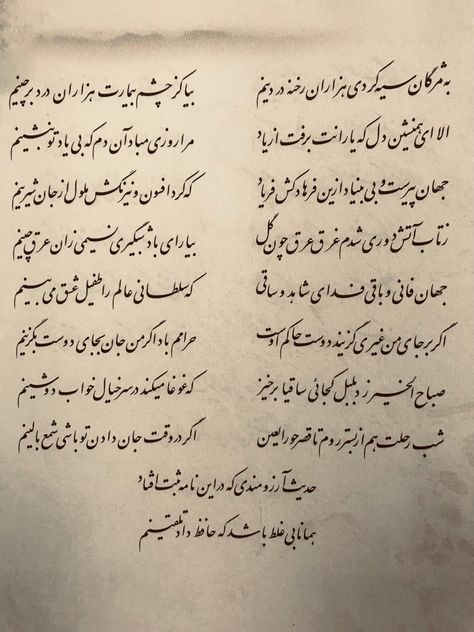 به مژگان سیه کردی هزاران رخنه در دینم بیا کز چشم بیمارت هزاران درد برچینم
الا ای همنشین دل که یارانت برفت از یاد مرا روزی مباد آن دم که بی یاد تو بنشینم
جهان پیرست و بی بنیاد ازین فرهادکش فریاد که کرد افسون و نیرنگش ملول از جان شیرینم
ز تاب آتش دوری شدم غرق عرق چون گل بیار ای باد شبگیری نسیمی زان عرق چینم
جهان فانی و باقی فدای شاهد و ساقی که سلطانی عالم را طفیل عشق می بینم
اگر بر جای من غیری گزیند دوست حاکم اوست حرامم باد اگر من جان بجای دوست بگزینم
صباح الخیر زد بلبل کجائی ساقیا برخیز که غوغا میکند در سر خیال خواب دوشینم
شب رحلت هم از بستر روم تا قصر حورالعین اگر در وقت جان دادن تو باشی شمع بالینم
حدیث آرزومندی که در این نامه ثبت افتاد
همانا بی غلط باشد که حافظ داد تلقینم